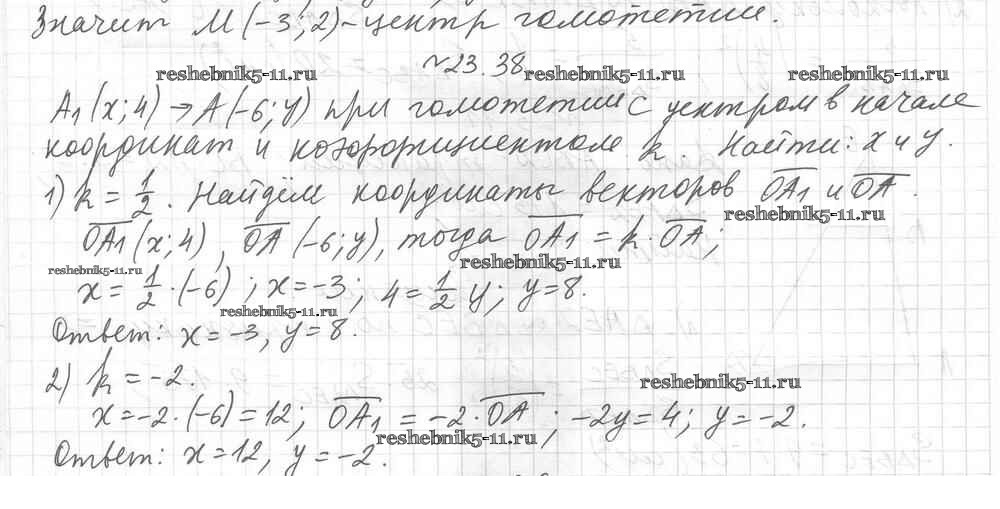 Значит M(-3;2)-центр гомотетии.
№23.38
reshebnik5-11.ru reshebnik5-11.ru reshebnik5-11.ru
A₁(x;4)→A(-6;y) при гомотетии с центром в начале
координат и коэффициентом k Найти: x и y.
1) k=1/2. Найдём координаты векторов OA₁ и OA.
reshebnik5-11.ru
OA₁(x;4), OA(-6;y), тогда OA₁=k·OA;
reshebnik5-11.ru reshebnik5-11.ru
x=1/2·(-6); x=-3; 4=1/2 y; y=8.
reshebnik5-11.ru
Ответ: x=-3, y=8.
2) k=-2.
reshebnik5-11.ru
x=-2·(-6)=12; OA₁=-2·OA; -2y=4; y=-2.
reshebnik5-11.ru
Ответ: x=12, y=-2.